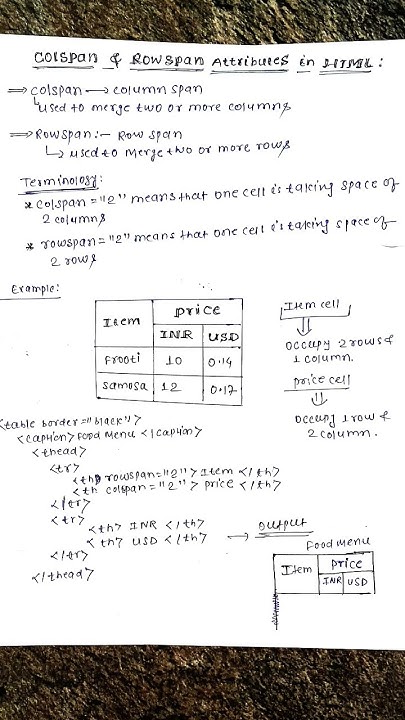 Colspan & Rowspan Attributes in HTML:
⟹ colspan → column span
↳ used to merge two or more columns
⟹ Rowspan:- Row span
↳ used to Merge two or more rows
Terminology:
* colspan="2" means that one cell is taking space of
2 columns
* rowspan="2" means that one cell is taking space of
2 rows
Example:
Item price
INR USD
Frooti 10 0.14
Samosa 12 0.17
Item cell
occupy 2 rows &
1 column.
price cell
occupy 1 row &
2 column.
<table border="black">
<caption> Food Menu </caption>
<thead>
<tr>
<th rowspan="2"> Item </th>
<th colspan="2"> price </th>
</tr>
<tr>
<th> INR </th>
<th> USD </th>
</tr>
</thead>
→ output
Food Menu
Item price
INR USD